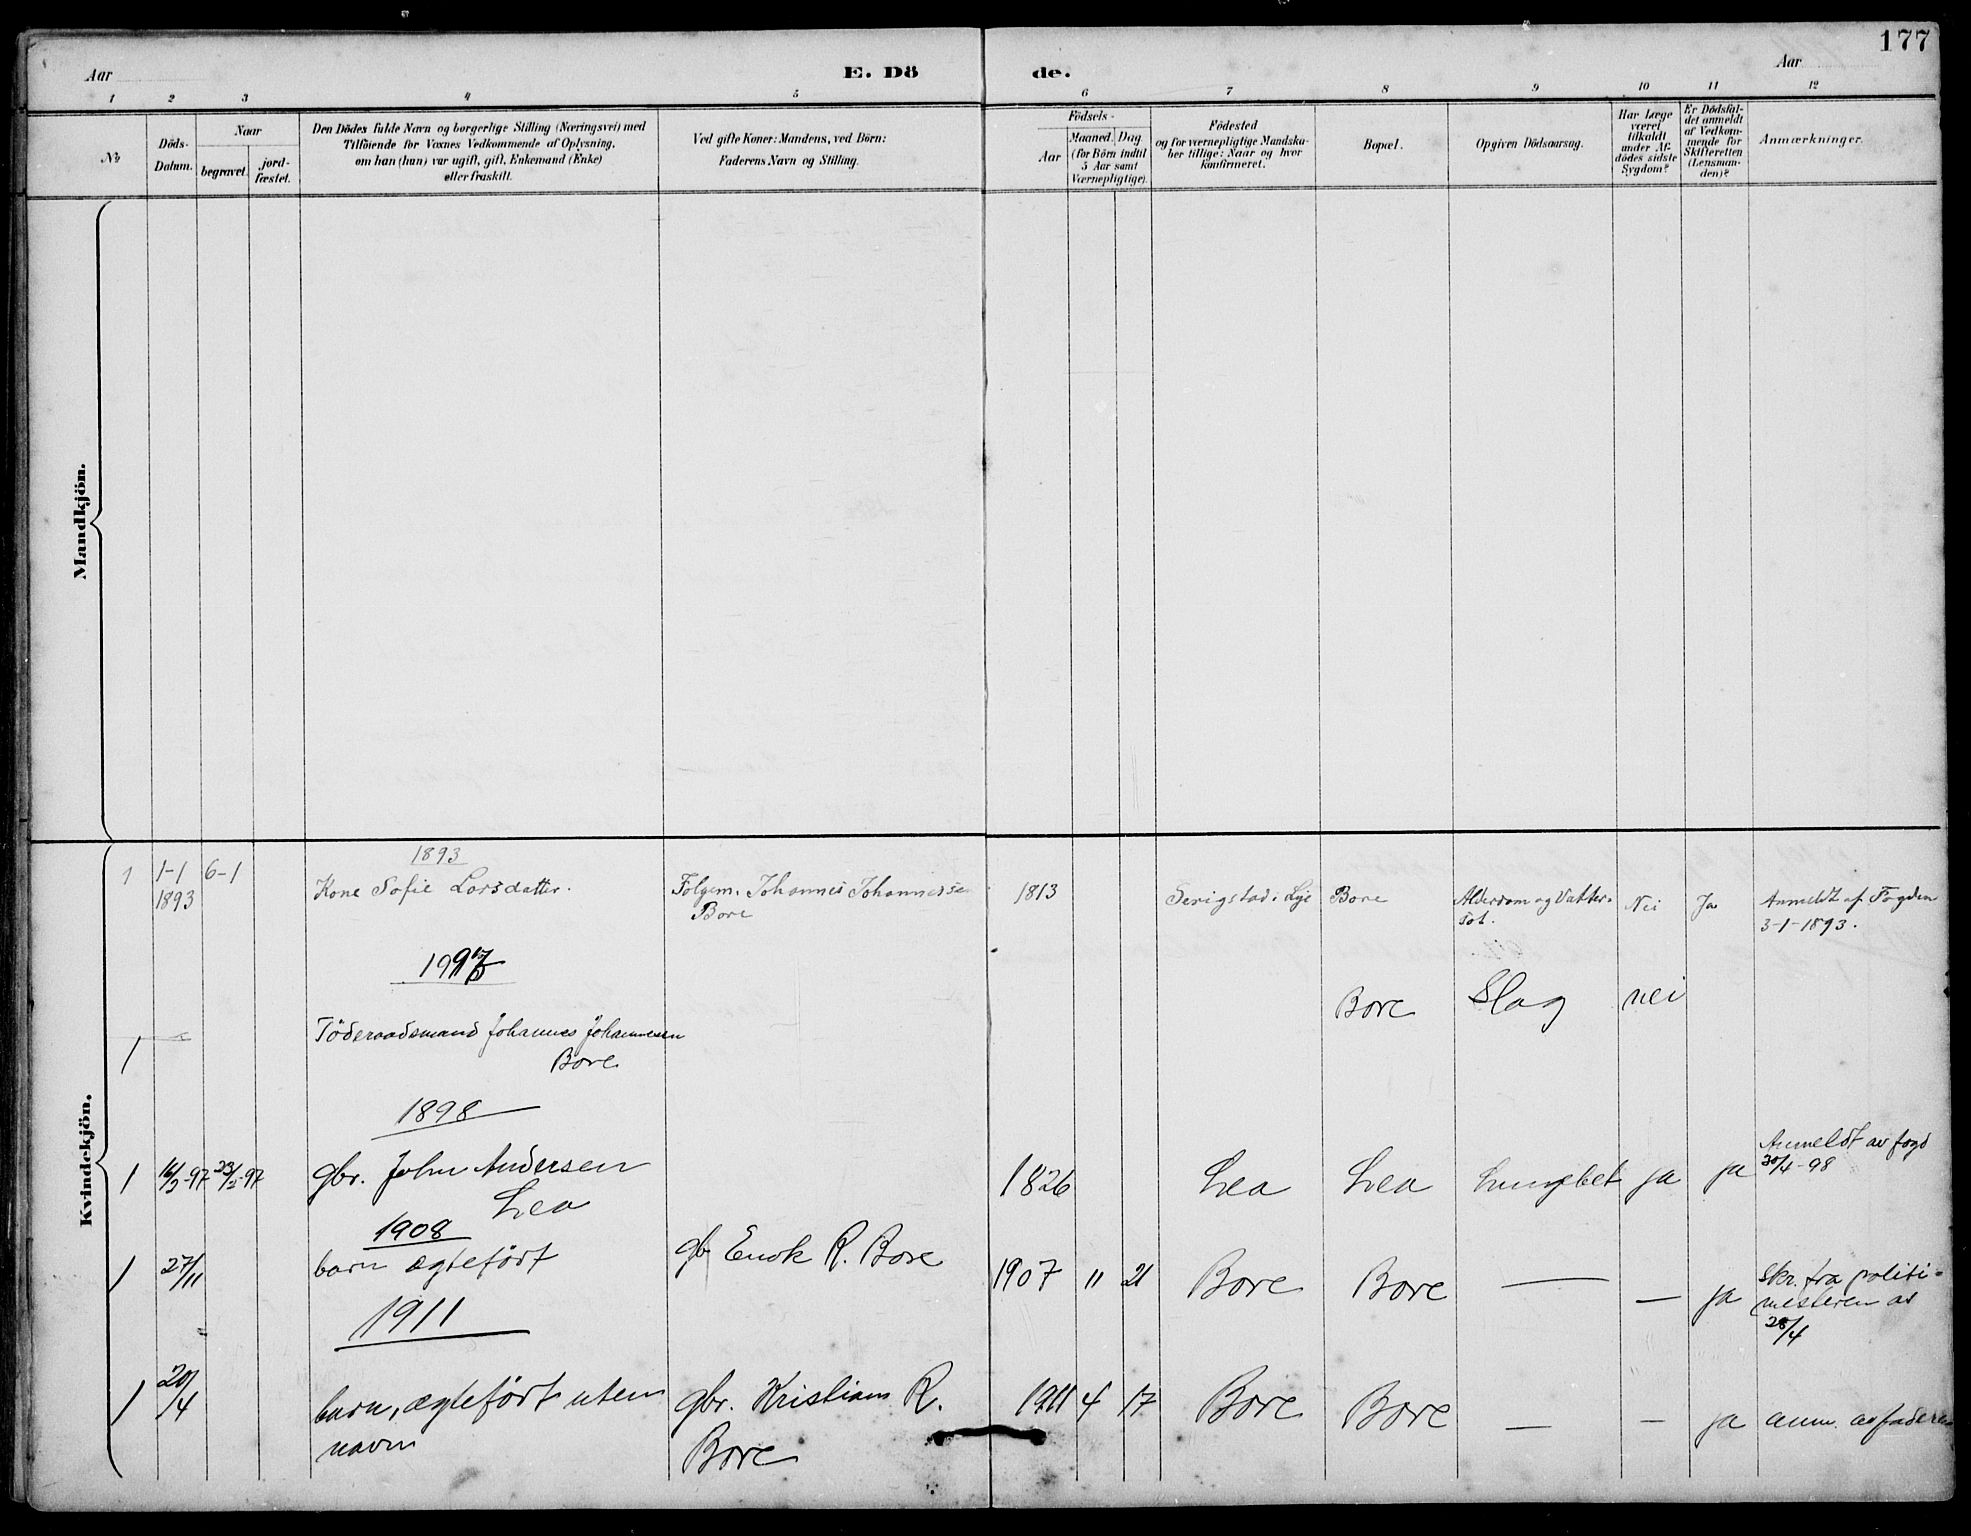 177
Aar
E. Dö
de.
Aar
1 2 3 4 5 6 7 8 9 10 11 12
No
Döds-
Datum.
Naar
begravet.
jord-
fæstet.
Den Dödes fulde Navn og borgerlige Stilling (Næringsvei) med
Tilföiende for Voxnes Vedkommende af Oplysning,
om han (hun) var ugift, gift, Enkemand (Enke)
eller fraskilt.
Ved gifte Koner: Mandens, ved Börn:
Faderens Navn og Stilling.
Födsels-
Aar
Maaned. Dag
(for Börn indtil
5 Aar samt
Værnepligtige).
Födested
og for værnepligtige Mandska-
ber tillige: Naar og hvor
konfirmeret.
Bopæl.
Opgiven Dödsaarsag.
Har Læge
været
tilkaldt
under Af-
dödes sidste
Sygdom?
Er Dödsfal-
det anmeldt
af Vedkom-
mende for
Skifteretten
(Lensman-
den)?
Anmærkninger.
Mandkjön.
Kvindekjön.
1893
1 1-1 6-1 Kone Sofie Larsdatter. Folgem. Johannes Johannessen 1813 Serigstad i Lye Bore Alderdom og Vatter- Nei Ja Anmeldt af Fogden
1893 Bore sot. 3-1-1893.
Bore Slag nei
1 Föderaadsmand Johannes Johannesen
Bore
1898
1 16/2-97 23/2-97 gbr. John Andersen 1826 Lea Lea Lungebet ja ja Anmeldt av fogd
Lea 30/4-98
1908
1 27/11 barn ægtefört gb Enok R. Bore 1907 11 21 Bore Bore — — ja Skr. fra politi-
mesteren av
28/4
1911
1 20/4 barn, ægtefört uten gbr. Kristian R. 1911 4 17 Bore Bore — — ja anm. av faderen
navn Bore